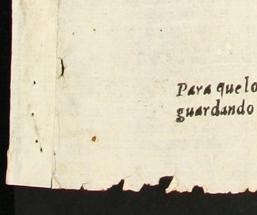 Para que lo
guardando